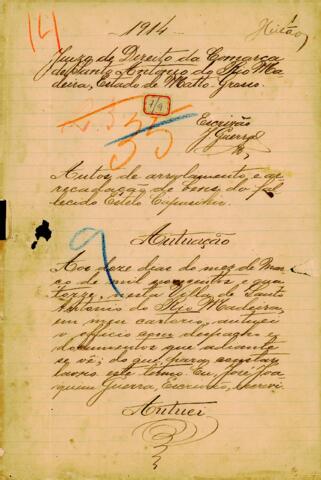 1914
Juizo de Direito da Comarca
de Santo Antonio do Rio Ma-
deira, Estado de Matto-Grosso.
Escrivão
Guerra
Autos de arrolamento, e ar-
recadação de bens do fal-
lecido
Autuação
Aos doze dias do mez de Mar-
ço de mil novecentos e qua-
torze, nesta Villa de Santo
Antonio do Rio Madeira,
em meu cartorio, autuei
o officio com despacho e
documentos que adiante
se vê; do que, para constar,
lavro este termo. Eu, José Joa-
quim Guerra, Escrivão, escrevi.
Autuei